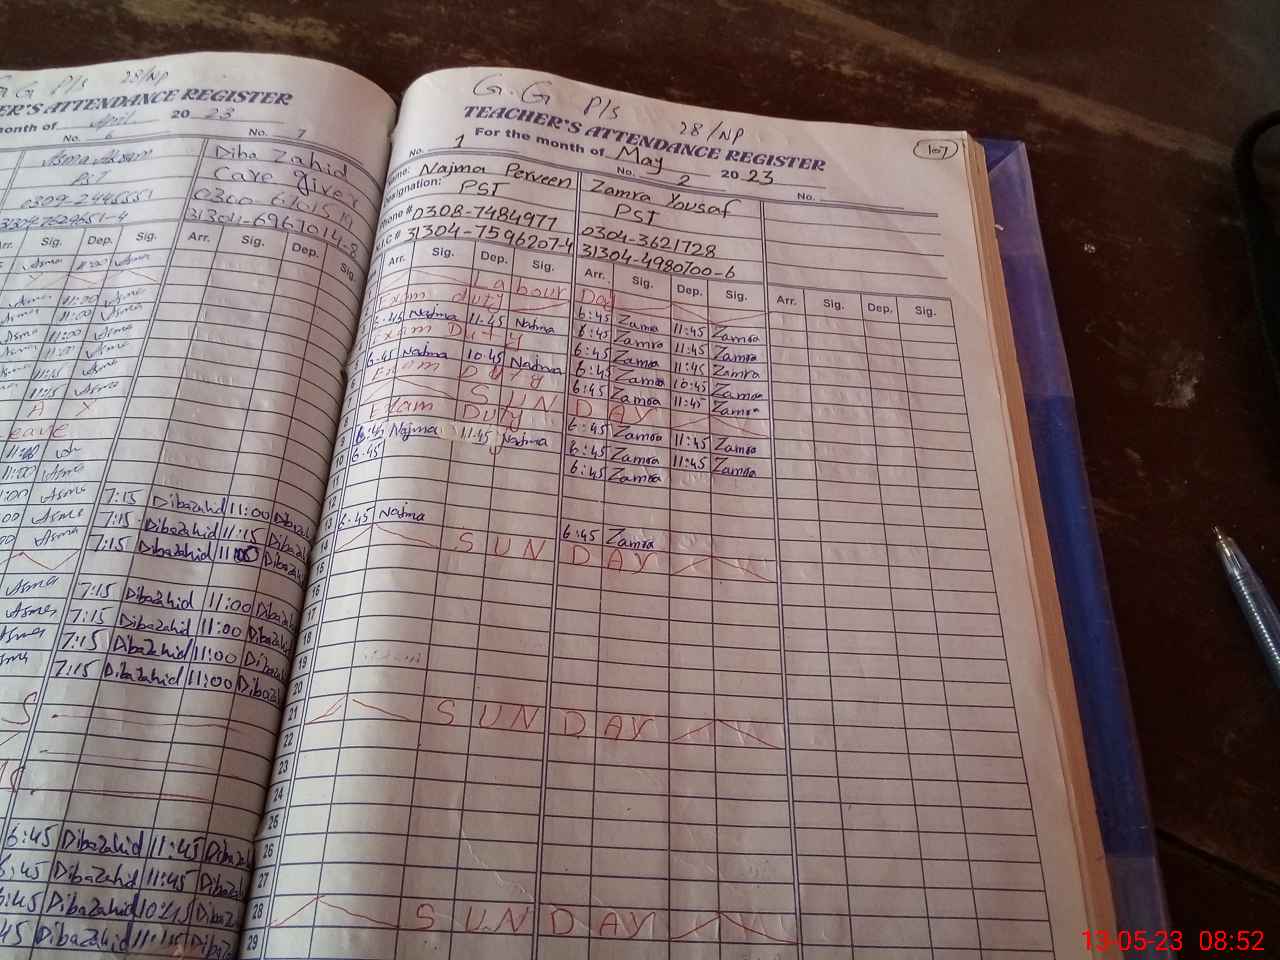 G.G P/S 28/NP
TEACHER'S ATTENDANCE REGISTER
For the month of May 2023
107
No. 1 No. 2 No.
Name: Najma Perveen Zamra Yousaf
Designation: PST PST
Phone # 0308-7484977 0304-3621728
31304-7596207-4 31304-4980700-6
Arr. Sig. Dep. Sig. Arr. Sig. Dep. Sig. Arr. Sig. Dep. Sig.
Labour Day
Exam duty 6:45 Zamra 11:45 Zamra
6:45 Najma 11:45 Najma 6:45 Zamra 11:45 Zamra
Exam Duty 6:45 Zamra 11:45 Zamra
6:45 Najma 10:45 Najma 6:45 Zamra 10:45 Zamra
Exam Duty 6:45 Zamra 11:45 Zamra
7 SUNDAY
8 Exam Duty 6:45 Zamra 11:45 Zamra
9 6:45 Najma 11:45 Najma 6:45 Zamra 11:45 Zamra
10 6:45 6:45 Zamra
11
12
13 6:45 Najma 6:45 Zamra
14 SUNDAY
15
16
17
18
19
20
21 SUNDAY
22
23
24
25
26
27
28 SUNDAY
29
G.G P/S 28/NP
ER'S ATTENDANCE REGISTER
month of April 2023
No. 6 No. 7
Asma Akram Diba Zahid
PST Care giver
0309-2445551
31304-6967014-8
Arr. Sig. Dep. Sig. Arr. Sig. Dep. Sig.
Asma 11:00 Asma
Asma 11:00 Asma
Asma 11:00 Asma
Asma 11:00 Asma
11:15 Asma
11:15 Asma
A X
Leave
11:00
11:00 Asma
Asma 7:15 Dibazahid 11:00 Dibazahid
Asma 7:15 Dibazahid 11:15 Dibaza
Asma 7:15 Dibazahid 11:00 Dibazah
Asma 7:15 Dibazahid 11:00 Dibazah
Asma 7:15 Dibazahid 11:00 Dibazah
Asma 7:15 Dibazahid 11:00 Dibazah
7:15 Dibazahid 11:00 Dibaza
S
6:45 Dibazahid 11:45 Dibaza
6:45 Dibazahid 11:45 Dibaza
6:45 Dibazahid 10:45 Dibaza
45 Dibazahid 11:15 Dibaza
13-05-23 08:52